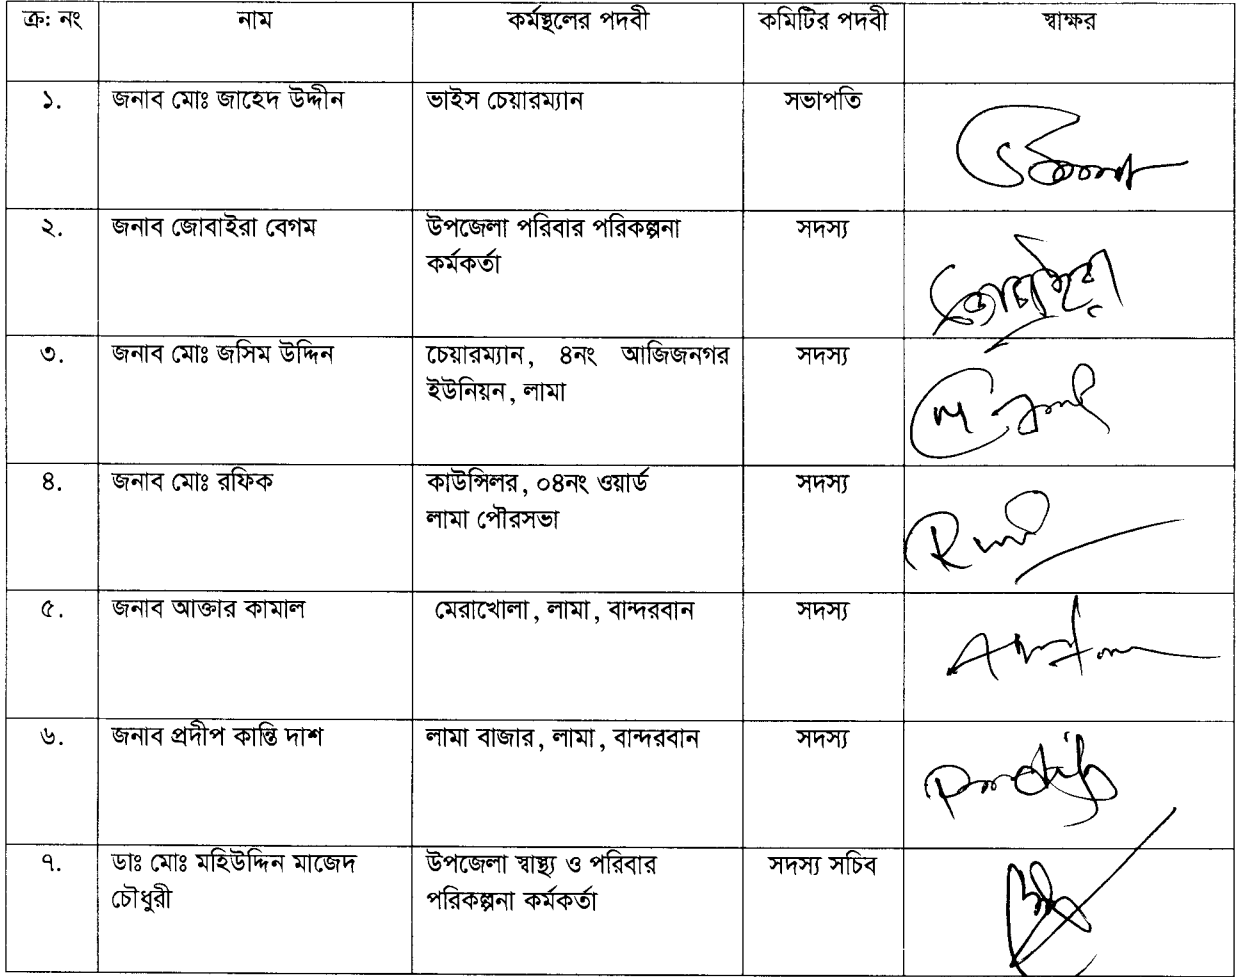 ক্র: নং নাম কর্মস্থলের পদবী কমিটির পদবী স্বাক্ষর
১. জনাব মোঃ জাহেদ উদ্দীন ভাইস চেয়ারম্যান সভাপতি
২. জনাব জোবাইরা বেগম উপজেলা পরিবার পরিকল্পনা সদস্য
কর্মকর্তা
জোবাইরা
৩. জনাব মোঃ জসিম উদ্দিন চেয়ারম্যান, ৪নং আজিজনগর সদস্য
ইউনিয়ন, লামা
৪. জনাব মোঃ রফিক কাউন্সিলর, ০৪নং ওয়ার্ড সদস্য
লামা পৌরসভা
৫. জনাব আক্তার কামাল মেরাখোলা, লামা, বান্দরবান সদস্য
৬. জনাব প্রদীপ কান্তি দাশ লামা বাজার, লামা, বান্দরবান সদস্য
Pradip
৭. ডাঃ মোঃ মহিউদ্দিন মাজেদ উপজেলা স্বাস্থ্য ও পরিবার সদস্য সচিব
চৌধুরী পরিকল্পনা কর্মকর্তা